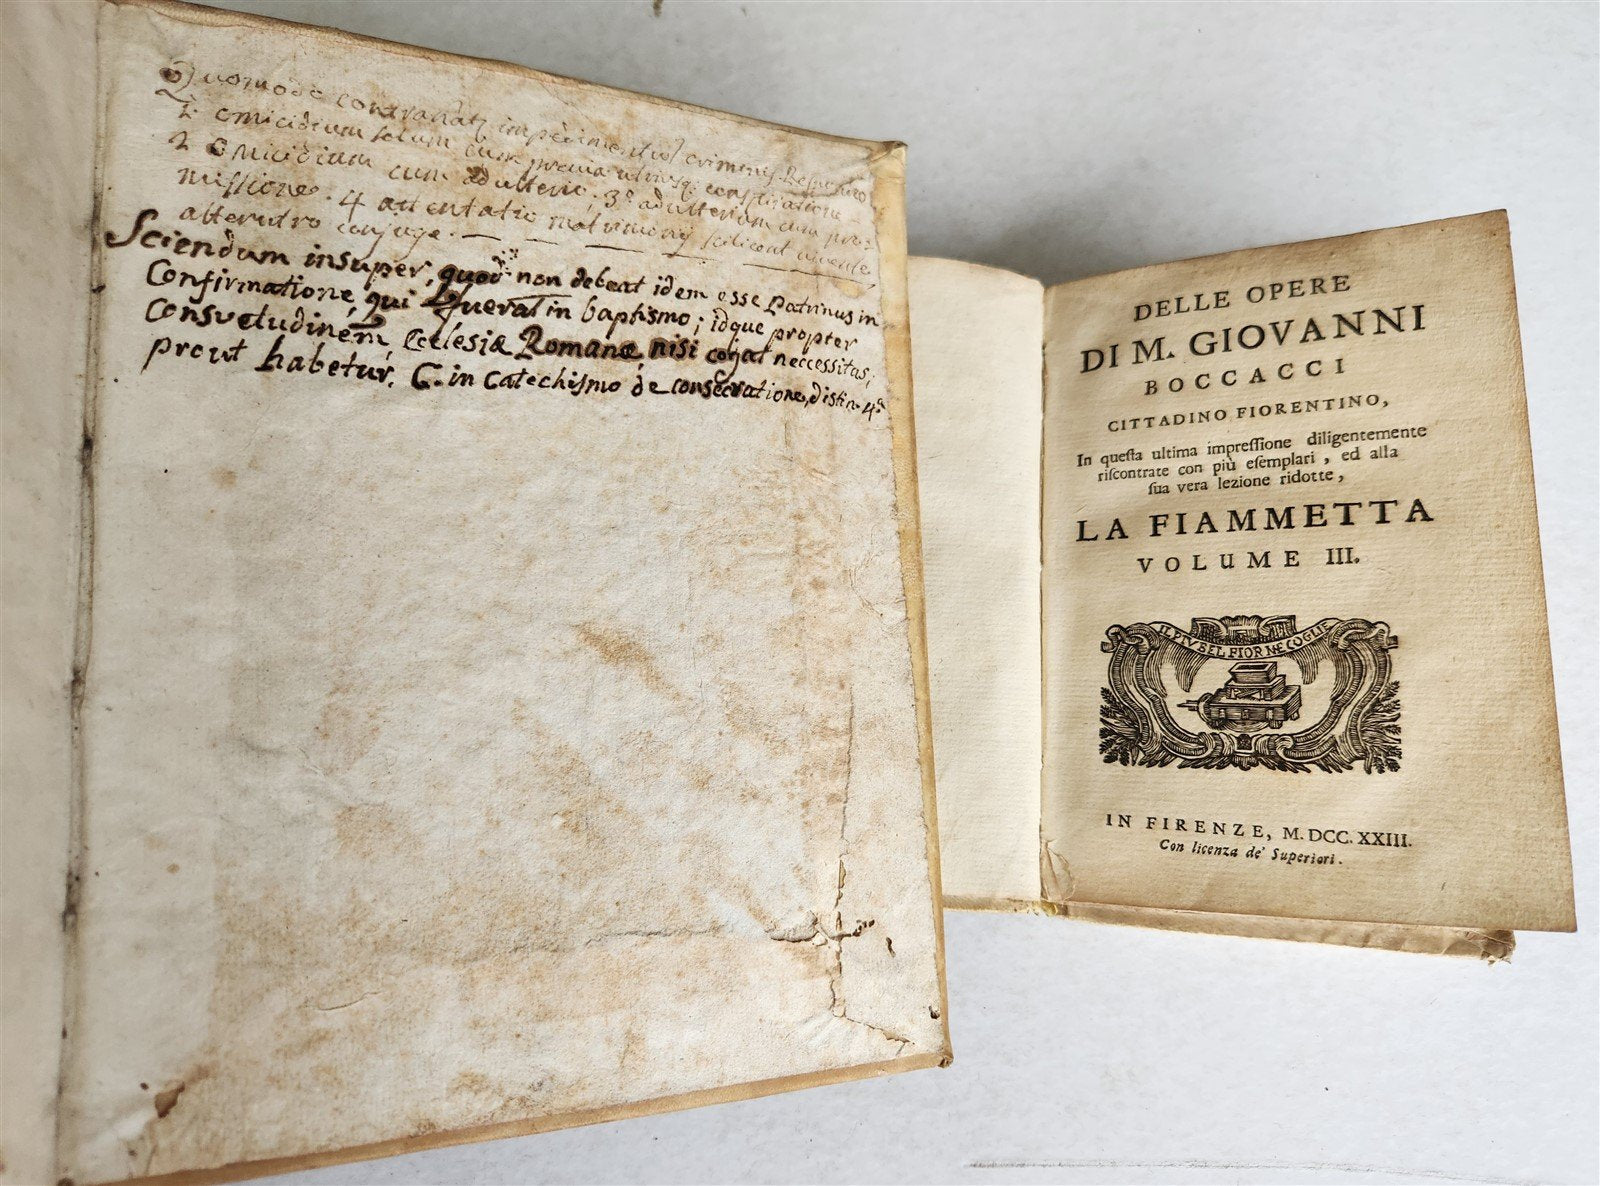 Quomodo contrahatʒ impedimentuʒ criminis. Respondeo
1. omicidium solum cum previa utriusq; conspiratione
2 Omicidium cum adulterio; 3.° adulterium cum pro=
missione. 4 attentatio matrimonij scilicet vivente
alterutro conjuge.
Sciendum insuper, quod non debeat idem esse Patrinus in
Confirmatione, qui fuerat in baptismo; idque propter
Consuetudinem, Ecclesiæ Romanæ, nisi cogat neccessitas;
prout habetur. C. in Catechismo de consecratione, distin 4ª
DELLE OPERE
DI M. GIOVANNI
BOCCACCI
CITTADINO FIORENTINO,
In queſta ultima impreſſione diligentemente
riſcontrate con più eſemplari, ed alla
ſua vera lezione ridotte,
LA FIAMMETTA
VOLUME III.
IL PIV BEL FIOR NE COGLIE
IN FIRENZE, M. DCC. XXIII.
Con licenza de' Superiori.